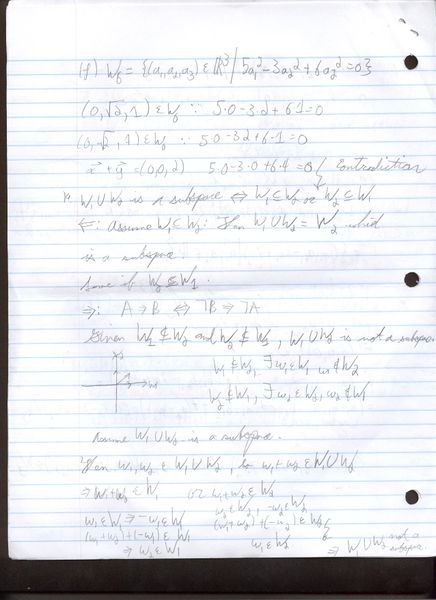 (f) W₆ = {(a₁,a₂,a₃) ε ℝ³ / 5a₁² - 3a₂² + 6a₃² = 0}
(0,√2,1) ε W₆ ∵ 5·0 - 3·2 + 6·1 = 0
(0,-√2,1) ε W₆ ∵ 5·0 - 3·2 + 6·1 = 0
x⃗ + y⃗ = (0,0,2) 5·0 - 3·0 + 6·4 = 0 { Contradiction
W₁ ∪ W₂ is a subspace ⇔ W₁ ⊆ W₂ or W₂ ⊆ W₁
⇐: Assume W₁ ⊆ W₂: Then W₁ ∪ W₂ = W₂ which
is a subspace
Same if W₂ ⊆ W₁.
⇒: A ⇒ B ⇔ ¬B ⇒ ¬A
Given W₁ ⊄ W₂ and W₂ ⊄ W₁, W₁ ∪ W₂ is not a subspace
W₁ ⊄ W₂, ∃ w₁ ε W₁ w₁ ∉ W₂
W₂ ⊄ W₁, ∃ w₂ ε W₂, w₂ ∉ W₁
Assume W₁ ∪ W₂ is a subspace.
Then w₁, w₂ ε W₁ ∪ W₂, so w₁ + w₂ ε W₁ ∪ W₂
⇒ w₁ + w₂ ε W₁ or w₁ + w₂ ε W₂
w₁ ε W₁ ⇒ -w₁ ε W₁ w₂ ε W₂, -w₂ ε W₂
(w₁ + w₂) + (-w₁) ε W₁ (w₁ + w₂) + (-w₂) ε W₂
⇒ w₂ ε W₁ w₁ ε W₂ ⇒ W₁ ∪ W₂ not a subspace.